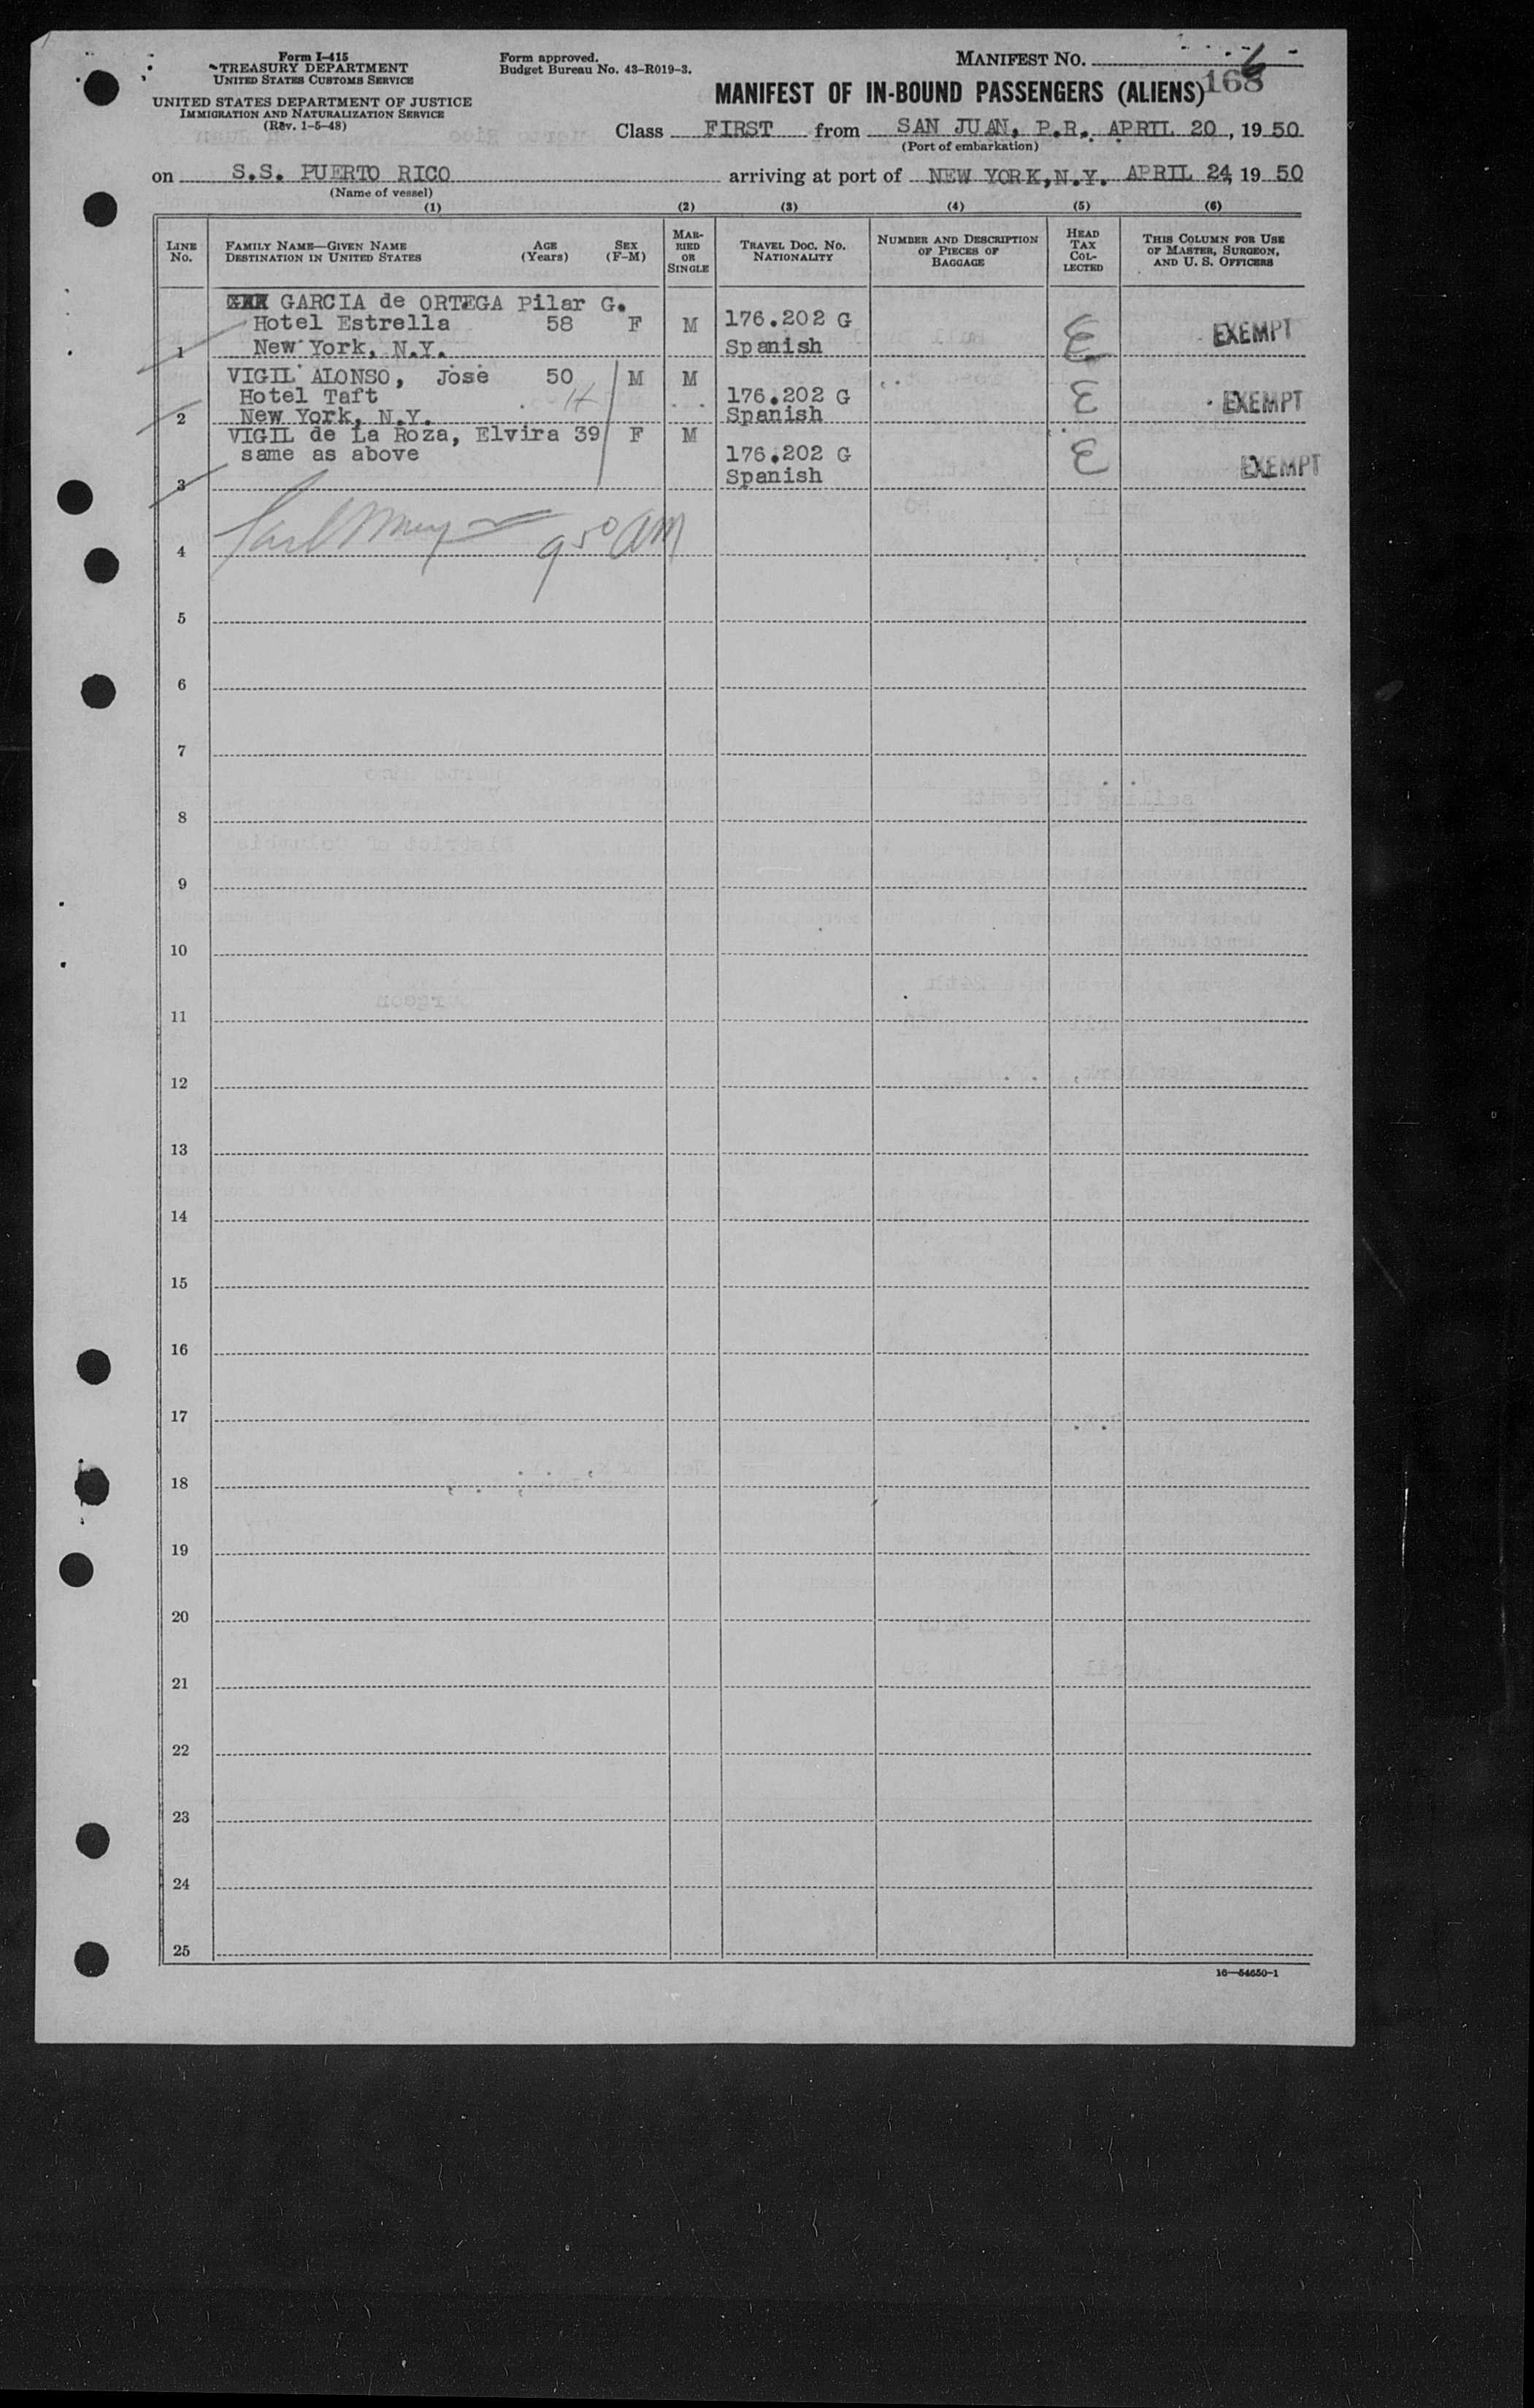 Form I-415
TREASURY DEPARTMENT
UNITED STATES CUSTOMS SERVICE
UNITED STATES DEPARTMENT OF JUSTICE
IMMIGRATION AND NATURALIZATION SERVICE
(Rev. 1-5-48)
Form approved.
Budget Bureau No. 43-R019-3.
MANIFEST NO. 6
168
MANIFEST OF IN-BOUND PASSENGERS (ALIENS)
Class FIRST from SAN JUAN, P.R. APRIL 20, 1950
(Port of embarkation)
on S.S. PUERTO RICO arriving at port of NEW YORK, N.Y. APRIL 24, 1950
(Name of vessel)
(1) (2) (3) (4) (5) (6)
LINE No.
FAMILY NAME—GIVEN NAME
DESTINATION IN UNITED STATES
AGE (Years)
SEX (F-M)
MARRIED OR SINGLE
TRAVEL DOC. NO.
NATIONALITY
NUMBER AND DESCRIPTION OF PIECES OF BAGGAGE
HEAD TAX COLLECTED
THIS COLUMN FOR USE OF MASTER, SURGEON, AND U. S. OFFICERS
GARCIA de ORTEGA Pilar G.
Hotel Estrella 58 F M 176.202 G E EXEMPT
1 New York, N.Y. Spanish
VIGIL ALONSO, José 50 M M
Hotel Taft 176.202 G E EXEMPT
2 New York, N.Y. Spanish
VIGIL de La Roza, Elvira 39 F M
same as above 176.202 G E EXEMPT
3 Spanish
9 50 AM
4
5
6
7
8
9
10
11
12
13
14
15
16
17
18
19
20
21
22
23
24
25
16—54650-1